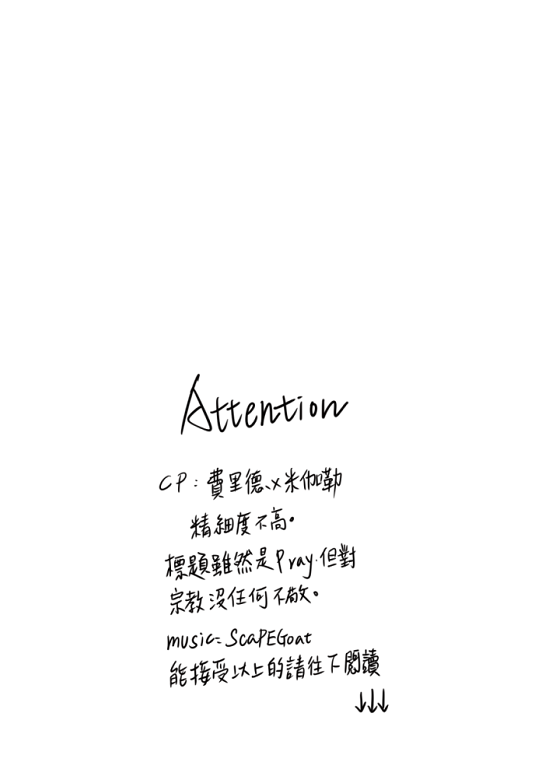 Attention
CP：費里德x米伽嘞
精細度不高。
標題雖然是Pray.但對
宗教沒任何不敬。
music：ScaPEGoat
能接受以上的請往下閱讀
↓↓↓